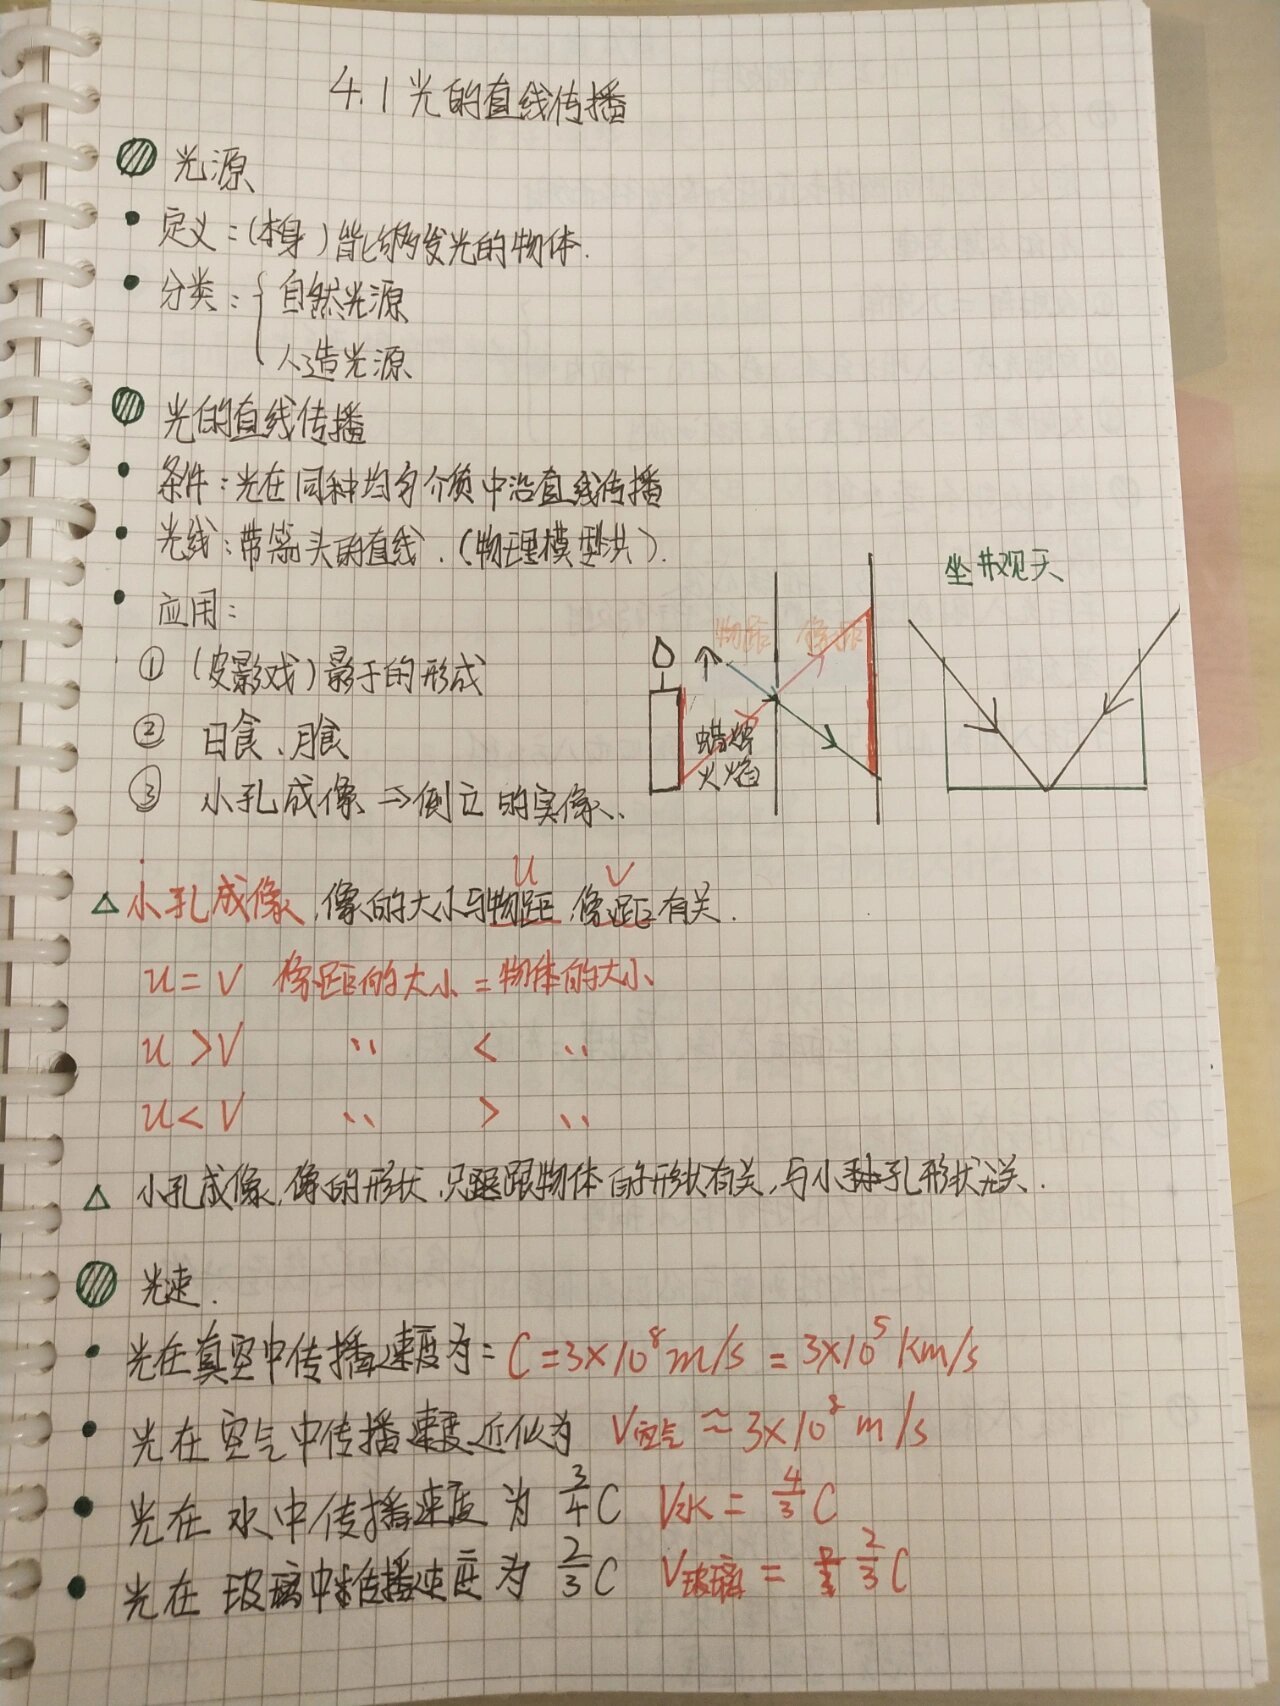 4.1 光的直线传播
光源
• 定义:(本身)能够发光的物体.
• 分类:{ 自然光源
人造光源
光的直线传播
• 条件:光在同种均匀介质中沿直线传播
• 光线:带箭头的直线.(物理模型法).
坐井观天
• 应用:
物距 像距
① (皮影戏)影子的形成
② 日食、月食
蜡烛
火焰
③ 小孔成像 ⇒ 倒立的实像.
u v
△ 小孔成像,像的大小与物距,像距有关.
u = v 像距的大小 = 物体的大小
u > v 〃 < 〃
u < v 〃 > 〃
△ 小孔成像,像的形状,只跟物体的形状有关,与小孔形状无关.
光速.
• 光在真空中传播速度为: C = 3×10⁸ m/s = 3×10⁵ km/s
• 光在空气中传播速度近似为 V空气 ≈ 3×10⁸ m/s
• 光在水中传播速度为 3/4 C V水 = 4/3 C
• 光在玻璃中传播速度为 2/3 C V玻璃 = 2/3 C